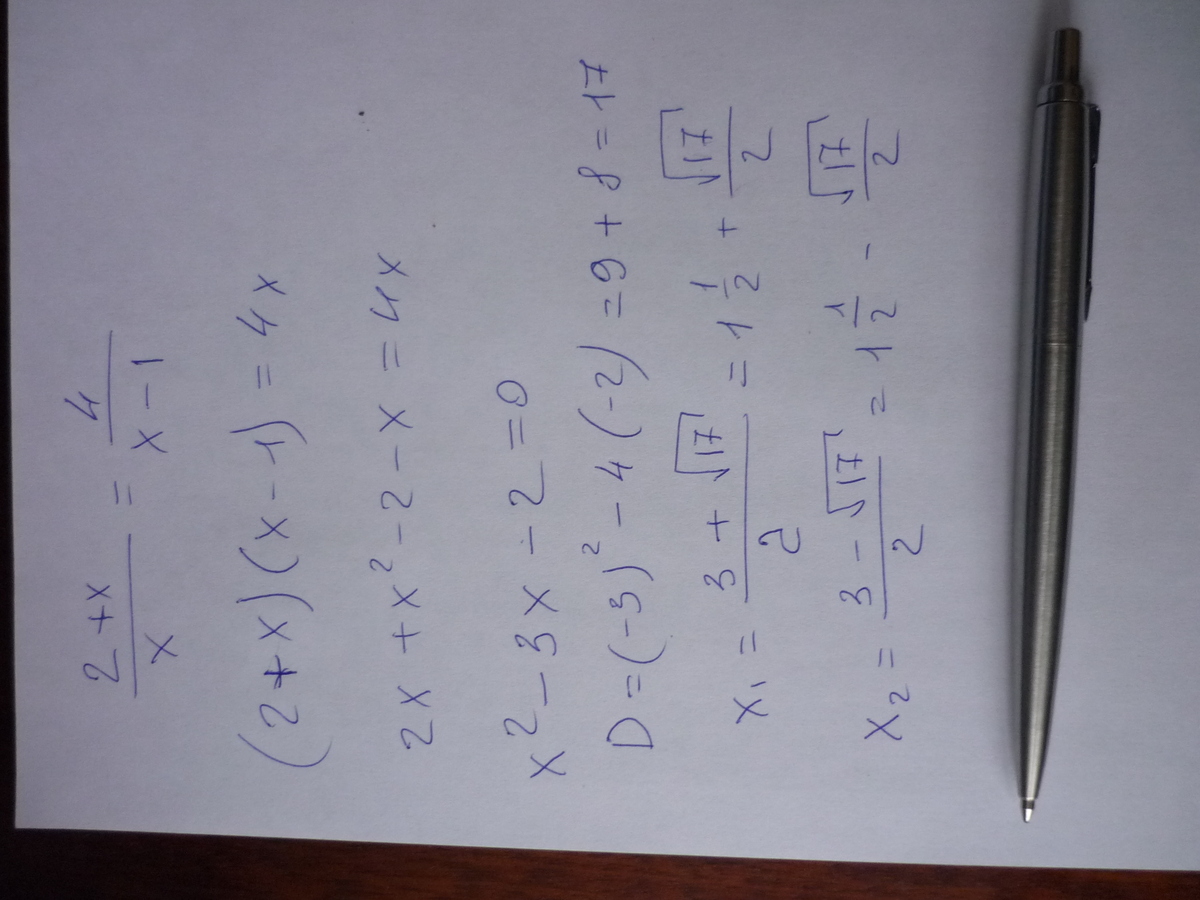 (2+x)/x = 4/(x-1)
(2+x)(x-1) = 4x
2x + x² - 2 - x = 4x
x² - 3x - 2 = 0
D = (-3)² - 4(-2) = 9 + 8 = 17
x₁ = (3 + √17)/2 = 1 1/2 + √17/2
x₂ = (3 - √17)/2 = 1 1/2 - √17/2